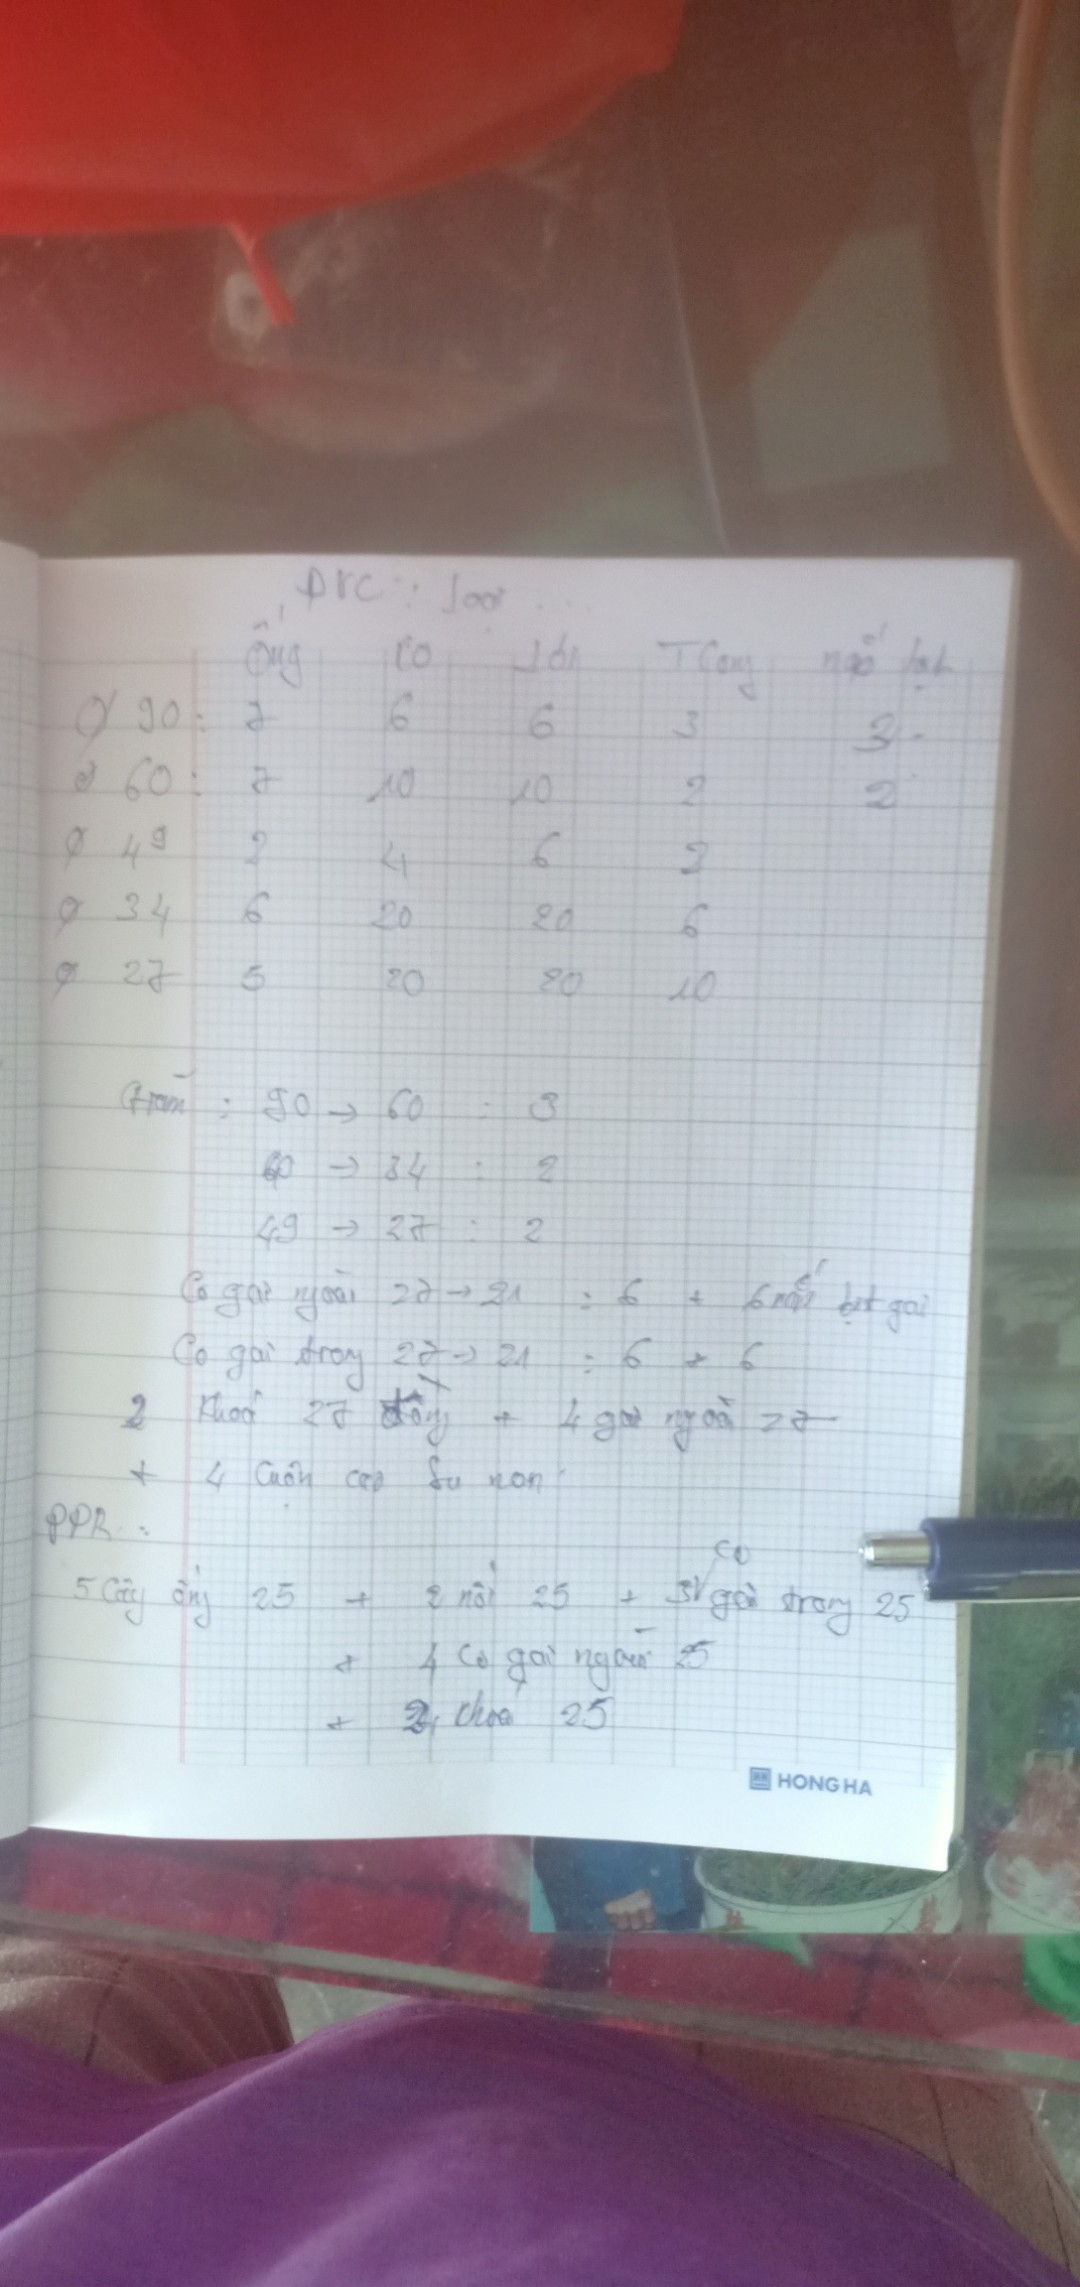 PVC : loại ...
Ống Co Lơi T Cong nắp bịt
Ø 90 : 7 6 6 3 3
Ø 60 : 7 10 10 2 2
Ø 49 2 4 6 2
Ø 34 6 20 20 6
Ø 27 5 20 20 10
Giảm : 90 → 60 : 3
60 → 34 : 2
49 → 27 : 2
Co gai ngoài 27 → 21 : 6 + 6 nắp bịt gai
Co gai trong 27 → 21 : 6 + 6
2 Khoá 27 đồng + 4 gai ngoài 27
+ 4 Cuộn cao su non
PPR :
5 Cây ống 25 + 2 nối 25 + 3 co gai trong 25
+ 4 co gai ngoài 25
+ 2 khoá 25
HONG HA